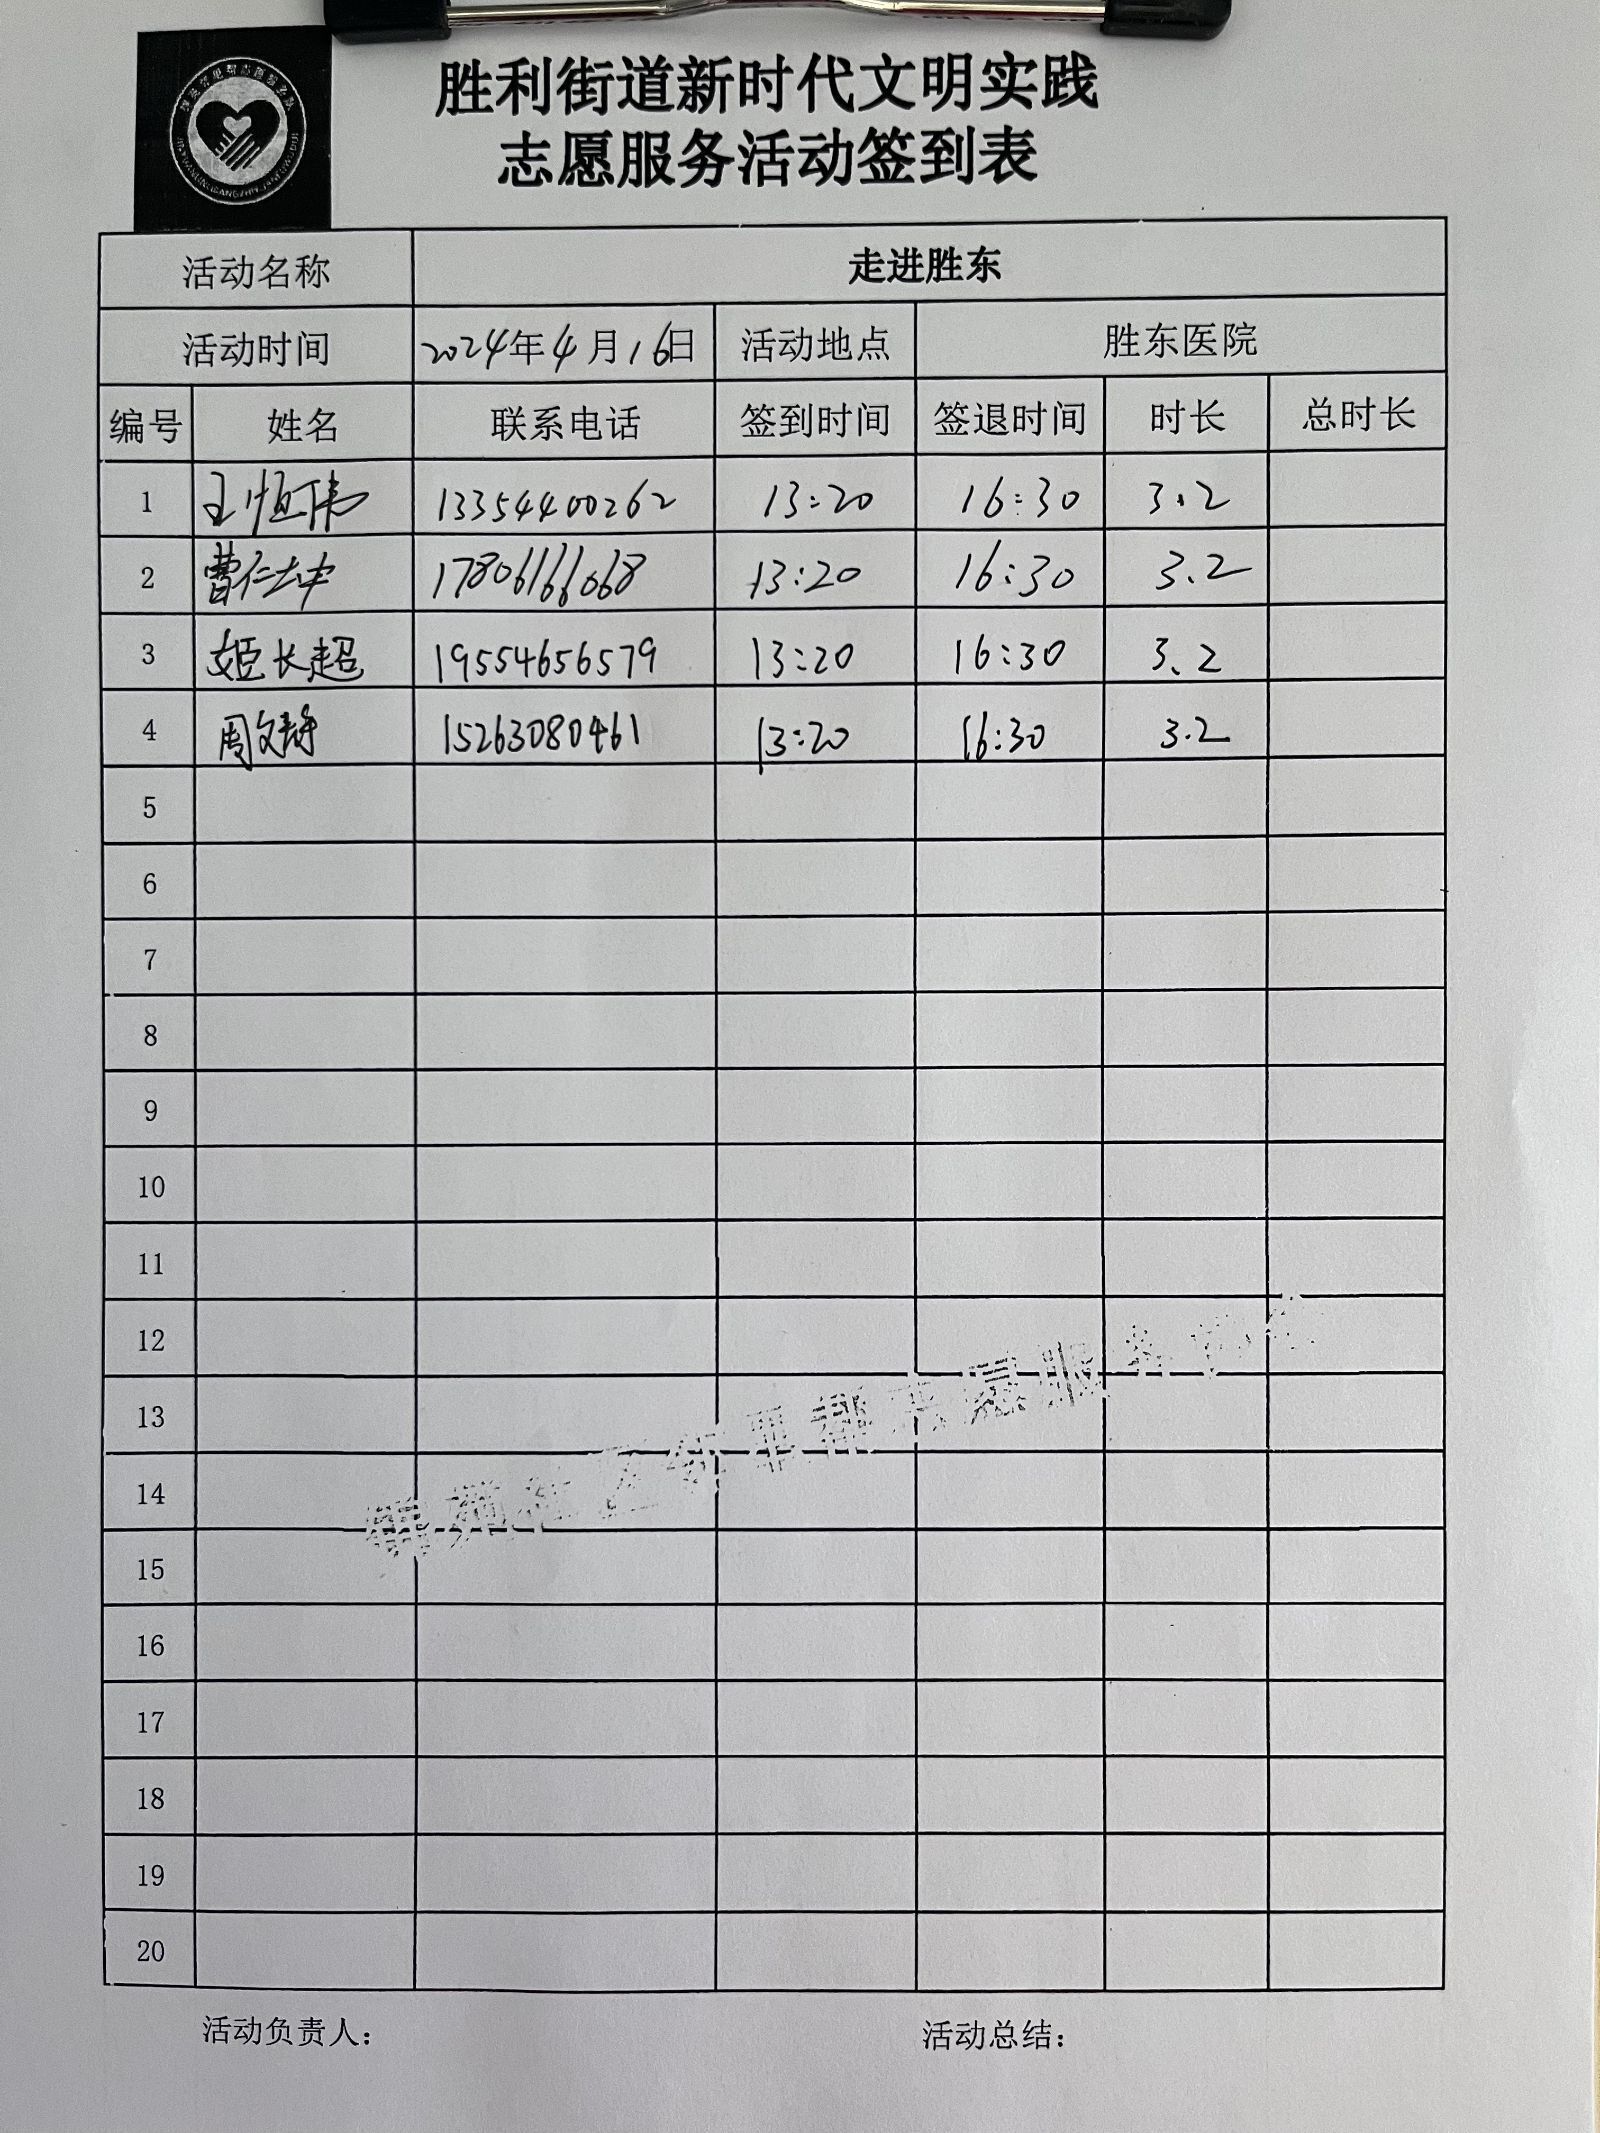 胜利街道新时代文明实践
志愿服务活动签到表
活动名称 走进胜东
活动时间 2024年4月16日 活动地点 胜东医院
编号 姓名 联系电话 签到时间 签退时间 时长 总时长
1 王恒伟 13354400262 13:20 16:30 3.2
2 曹仁忠 17806166068 13:20 16:30 3.2
3 姬长超 19554656579 13:20 16:30 3.2
4 周文静 15263080461 13:20 16:30 3.2
5
6
7
8
9
10
11
12
13
14
15
16
17
18
19
20
活动负责人： 活动总结：